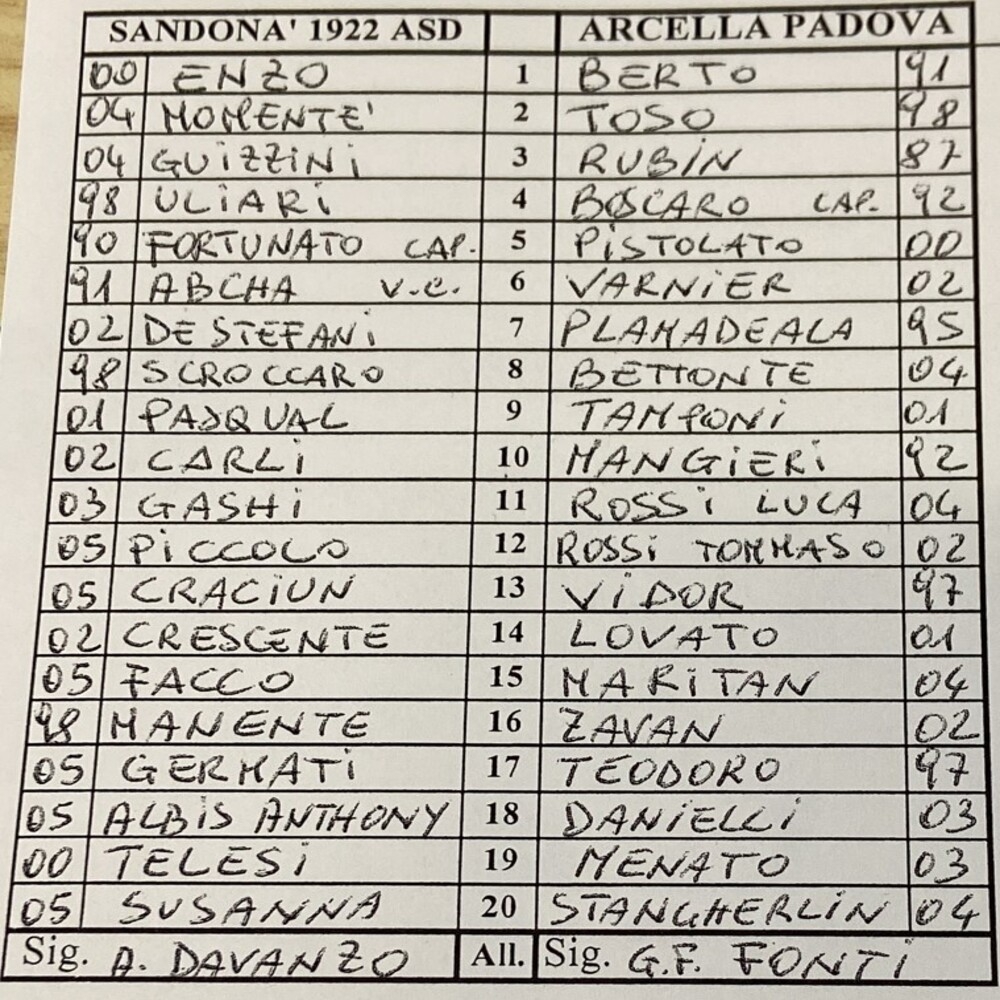 SANDONA' 1922 ASD ARCELLA PADOVA
00 ENZO 1 BERTO 91
04 MOMENTE' 2 TOSO 98
04 GUIZZINI 3 RUBIN 87
98 ULIARI 4 BOSCARO CAP. 92
90 FORTUNATO CAP. 5 PISTOLATO 00
91 ABCHA V.C. 6 VARNIER 02
02 DE STEFANI 7 PLAMADEALA 95
98 SCROCCARO 8 BETTONTE 04
01 PASQUAL 9 TAMPONI 01
02 CARLI 10 MANGIERI 92
03 GASHI 11 ROSSI LUCA 04
05 PICCOLO 12 ROSSI TOMMASO 02
05 CRACIUN 13 VIDOR 97
02 CRESCENTE 14 LOVATO 01
05 FACCO 15 MARITAN 04
98 MANENTE 16 ZAVAN 02
05 GERMATI 17 TEODORO 97
05 ALBIS ANTHONY 18 DANIELLI 03
00 TELESI 19 MENATO 03
05 SUSANNA 20 STANGHERLIN 04
Sig. A. DAVANZO All. Sig. G.F. FONTI